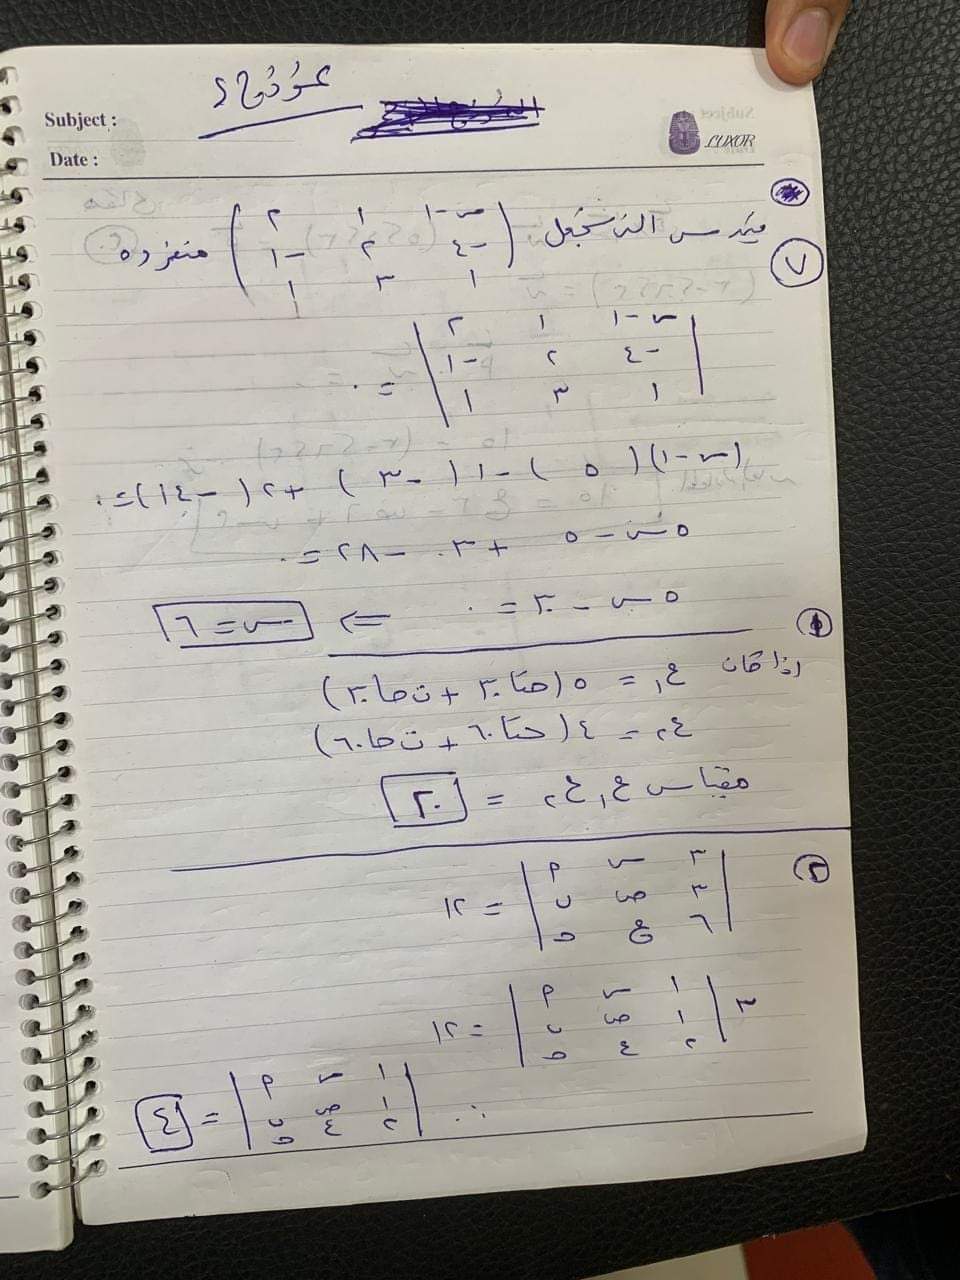 Subject :
Date :
LUXOR
٧
قيمة س التى تجعل ( س-١ ١ ٢
-٤ ٢ -١
١ ٣ ١ ) منفردة
| س-١ ١ ٢
-٤ ٢ -١
١ ٣ ١ | = ٠
(س-١)( ٥ ) -١( -٣ ) +٢( -١٤)=٠
٥س - ٥ + ٣ - ٢٨ = ٠
٥س - ٣٠ = ٠ ⇐ س = ٦
١
إذا كان ع١ = ٥ (حتا ٣٠ + ت حا ٣٠)
ع٢ = ٤ (حتا ٦٠ + ت حا ٦٠)
مقياس ع١ ع٢ = ٢٠
٢
| ٣ س م
٣ ص ن
٦ ع و | = ١٢
٣ | ١ س م
١ ص ن
٢ ع و | = ١٢
∴ | ١ س م
١ ص ن
٢ ع و | = ٤